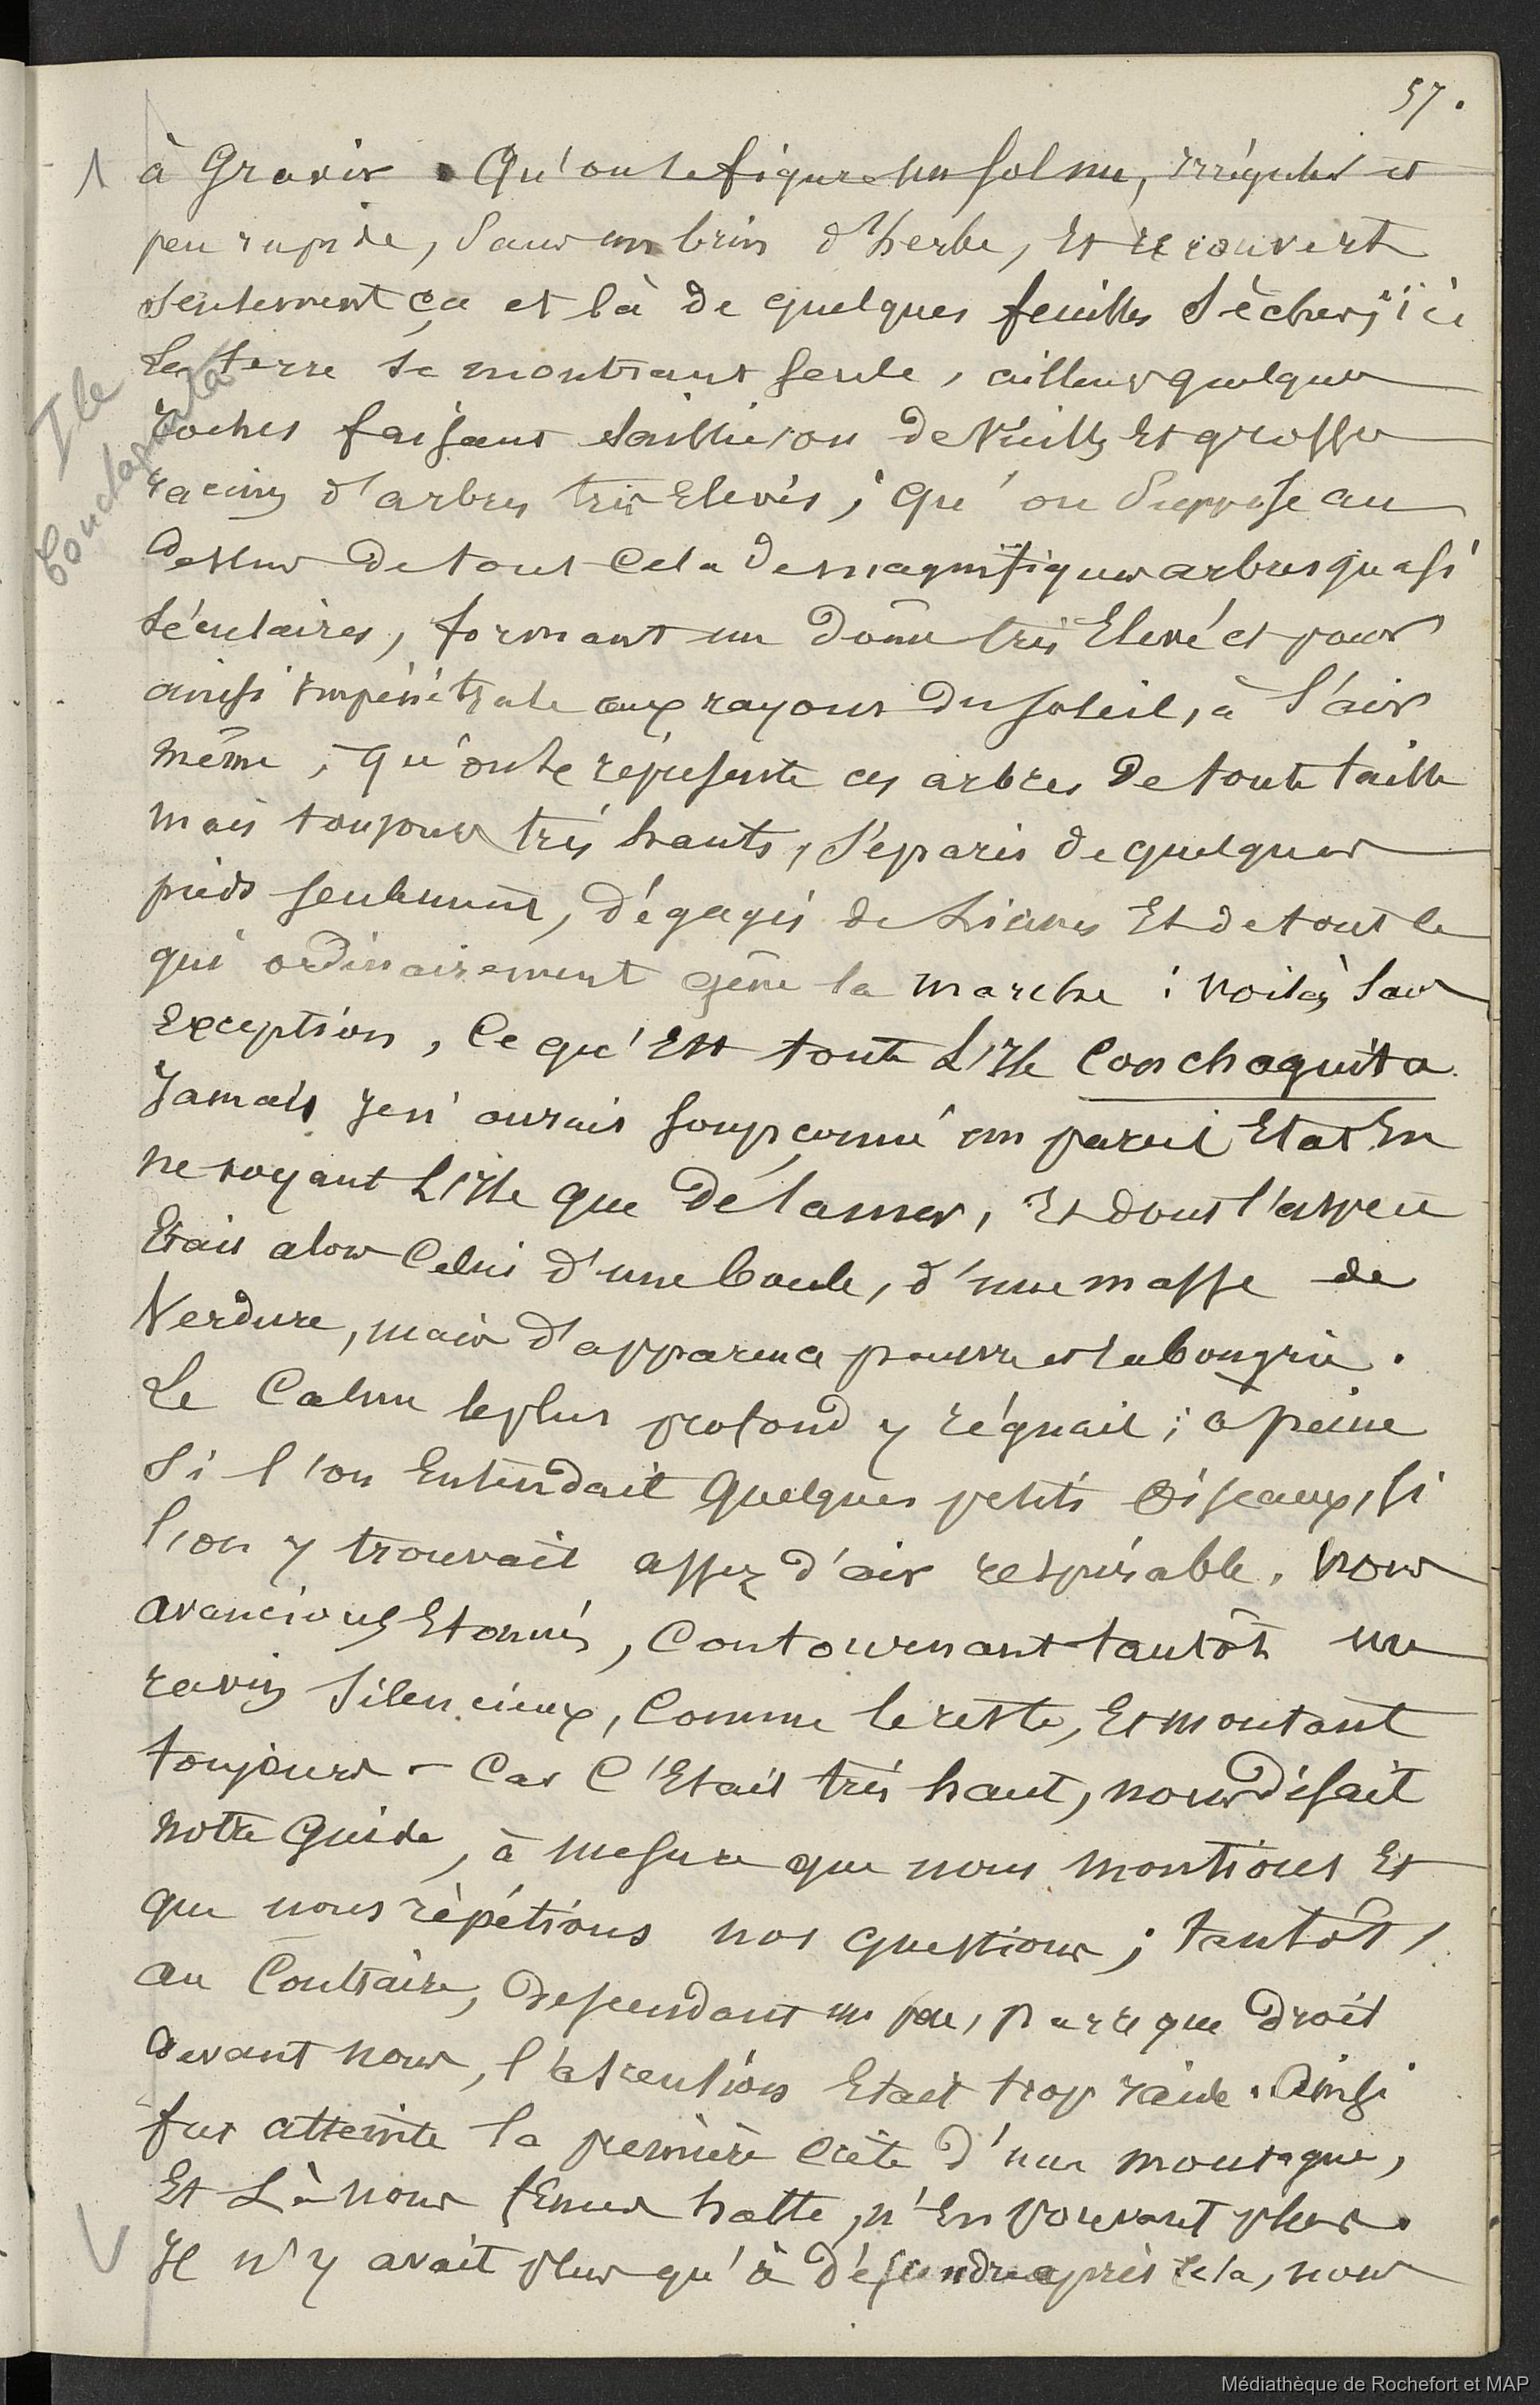 57.
à Gravir. Qu'on se figure un sol nu, irrégulier et
peu rapide, Sans un brin d'herbe, Et recouvert
Seulement ça et là de quelques feuilles Sèches, ici
La terre se montrant seule, ailleurs quelques
roches faisant Saillie, ou de Vieilles Et grosses
racines d'arbres très Elevés ; qu'on Suppose au
dessus de tout Cela de magnifiques arbres quasi
Séculaires, formant un Dôme très Elevé et pour
ainsi impénétrable aux rayons du Soleil, à l'air
même ; qu'on se représente ces arbres de toute taille
mais toujours très hauts, Séparés de quelques
pieds Seulement, dégagés de Lianes Et de tout ce
qui ordinairement gêne la marche ; Voilà, Sans
Exception, Ce qu'Est toute L'Isle Conchaguita.
Jamais Je n'aurais Soupçonné un pareil Etat En
ne voyant L'Isle que De la mer, Et dont l'aspect
Etait alors Celui d'une boule, d'une masse de
Verdure, mais d'apparence pauvre et rabougrie.
Le Calme le plus profond y régnait ; à peine
Si l'on Entendait quelques petits Oiseaux, Si
l'on y trouvait assez d'air respirable. Nous
avancions Etonnés, Contournant tantôt un
ravin Silencieux, Comme le reste, Et montant
toujours - Car C'Etait très haut, nous disait
notre Guide, à mesure que nous montions Et
que nous répétions nos questions ; tantôt,
au Contraire, descendant un peu, parce que Droit
devant nous, l'ascention Etait trop raide. Ainsi
fut atteinte la première Crête d'une montagne,
Et Là nous fimes halte, n'En pouvant plus.
Il n'y avait plus qu'à déscendre après cela, nous
Ile
Conchaguita
Médiathèque de Rochefort et MAP